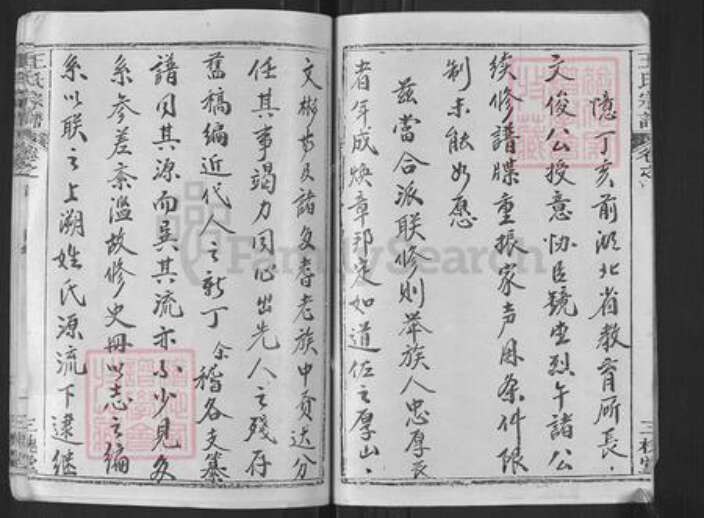 王氏宗譜
憶丁亥前湖北省教育所長
文俊公授意協臣鏡堂烈午諸公
續修譜牒重振家声因条件限
制未能如愿
茲當合派聯修則举族人忠厚長
者年成煥章邦定如道佐之厚山
三槐堂
文彬步及諸多耆老族中贡达分
任其事竭力同心出先人之殘存
舊稿編近代人之新丁余稽各支纂
譜同其源而異其流亦不少見多
系參差紊滥故修史冊以志之编
系以联之上溯姓氏源流下逮继
王氏宗譜
三槐堂
FamilySearch